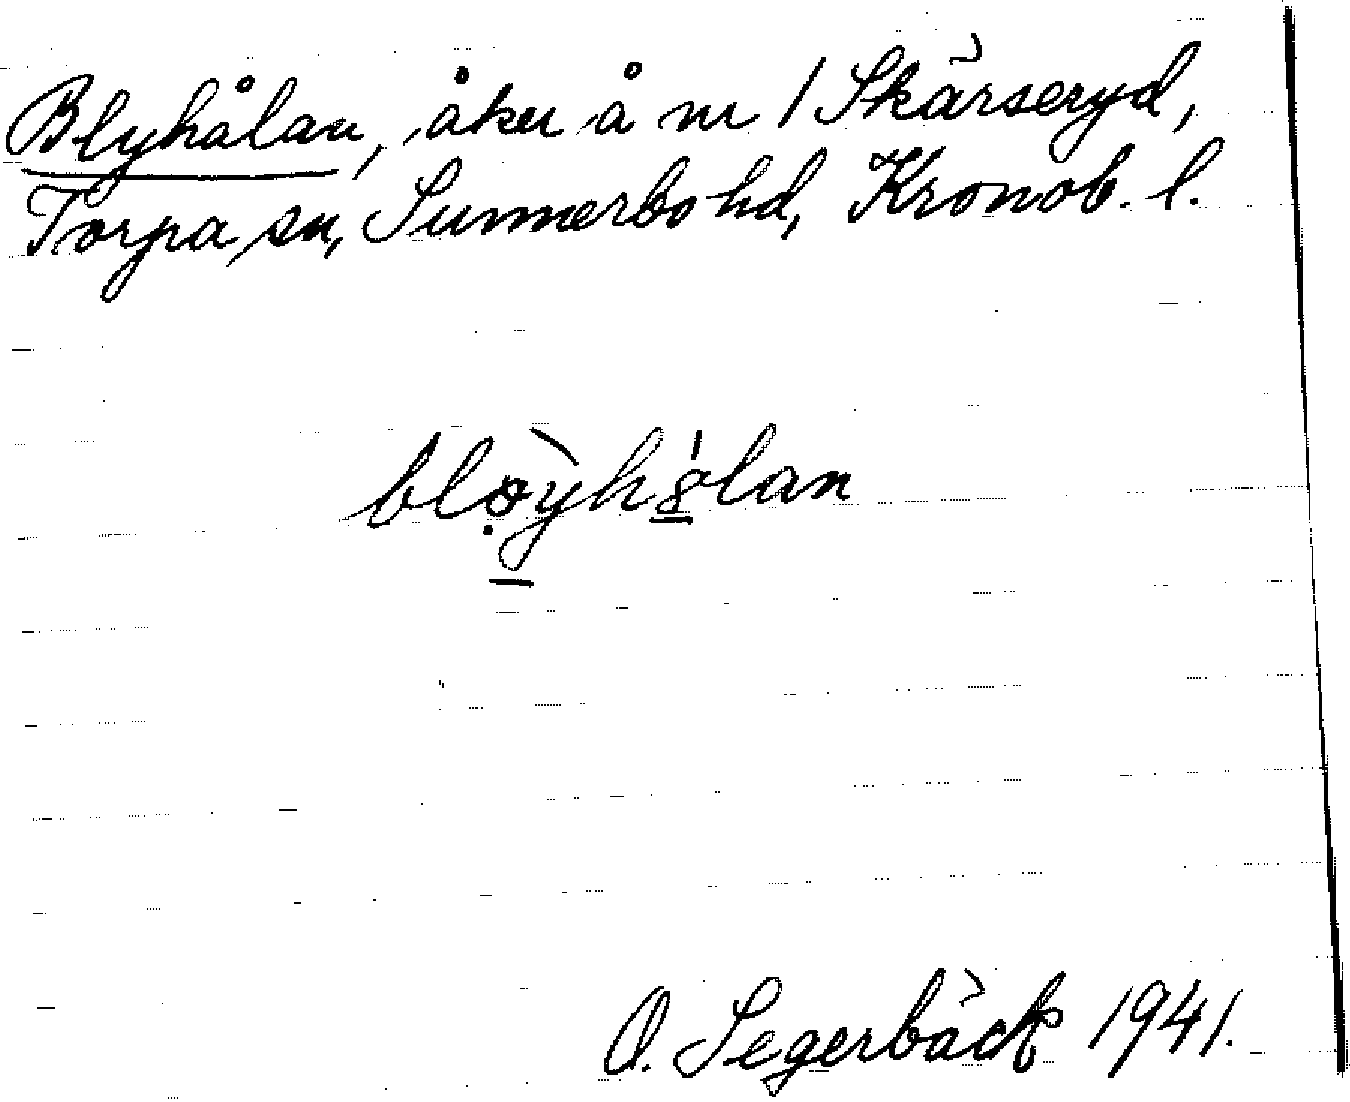 Blyhålan, åker å nr 1 Skärseryd,
Torpa sn, Sunnerbo hd, Kronob. l.
bløyhålan
O. Segerbäck 1941.